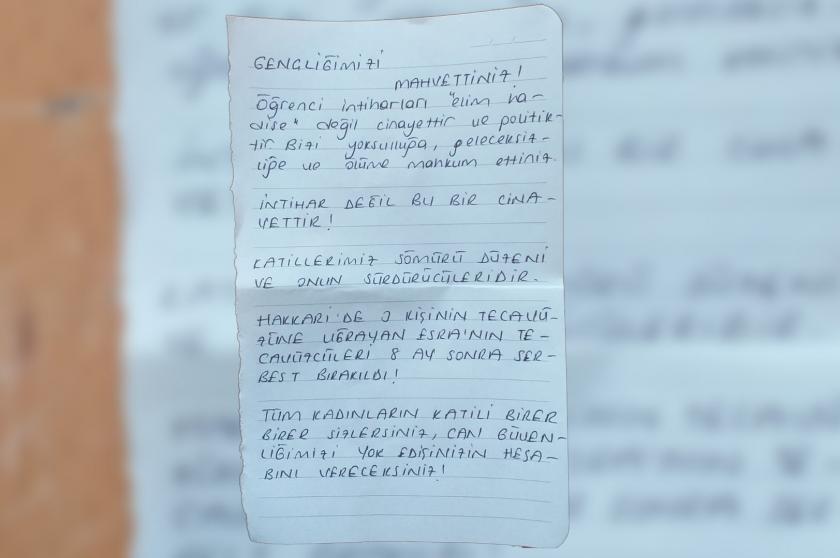 GENÇLİĞİMİZİ
MAHVETTİNİZ!
Öğrenci intiharları "elim ha-
dise" değil cinayettir ve politik-
tir. Bizi yoksulluğa, geleceksiz-
liğe ve ölüme mahkum ettiniz.
İNTİHAR DEĞİL BU BİR CİNA-
YETTİR!
KATİLLERİMİZ SÖMÜRÜ DÜZENİ
VE ONUN SÜRDÜRÜCÜLERİDİR.
HAKKARİ'DE KİŞİNİN TECAVÜ-
ZÜNE UĞRAYAN ESRA'NIN TE-
CAVÜZCÜLERİ 8 AY SONRA SER-
BEST BIRAKILDI!
TÜM KADINLARIN KATİLİ BİRER
BİRER SİZLERSİNİZ, CAN GÜVEN-
LİĞİMİZİ YOK EDİŞİNİZİN HESA-
BINI VERECEKSİNİZ!